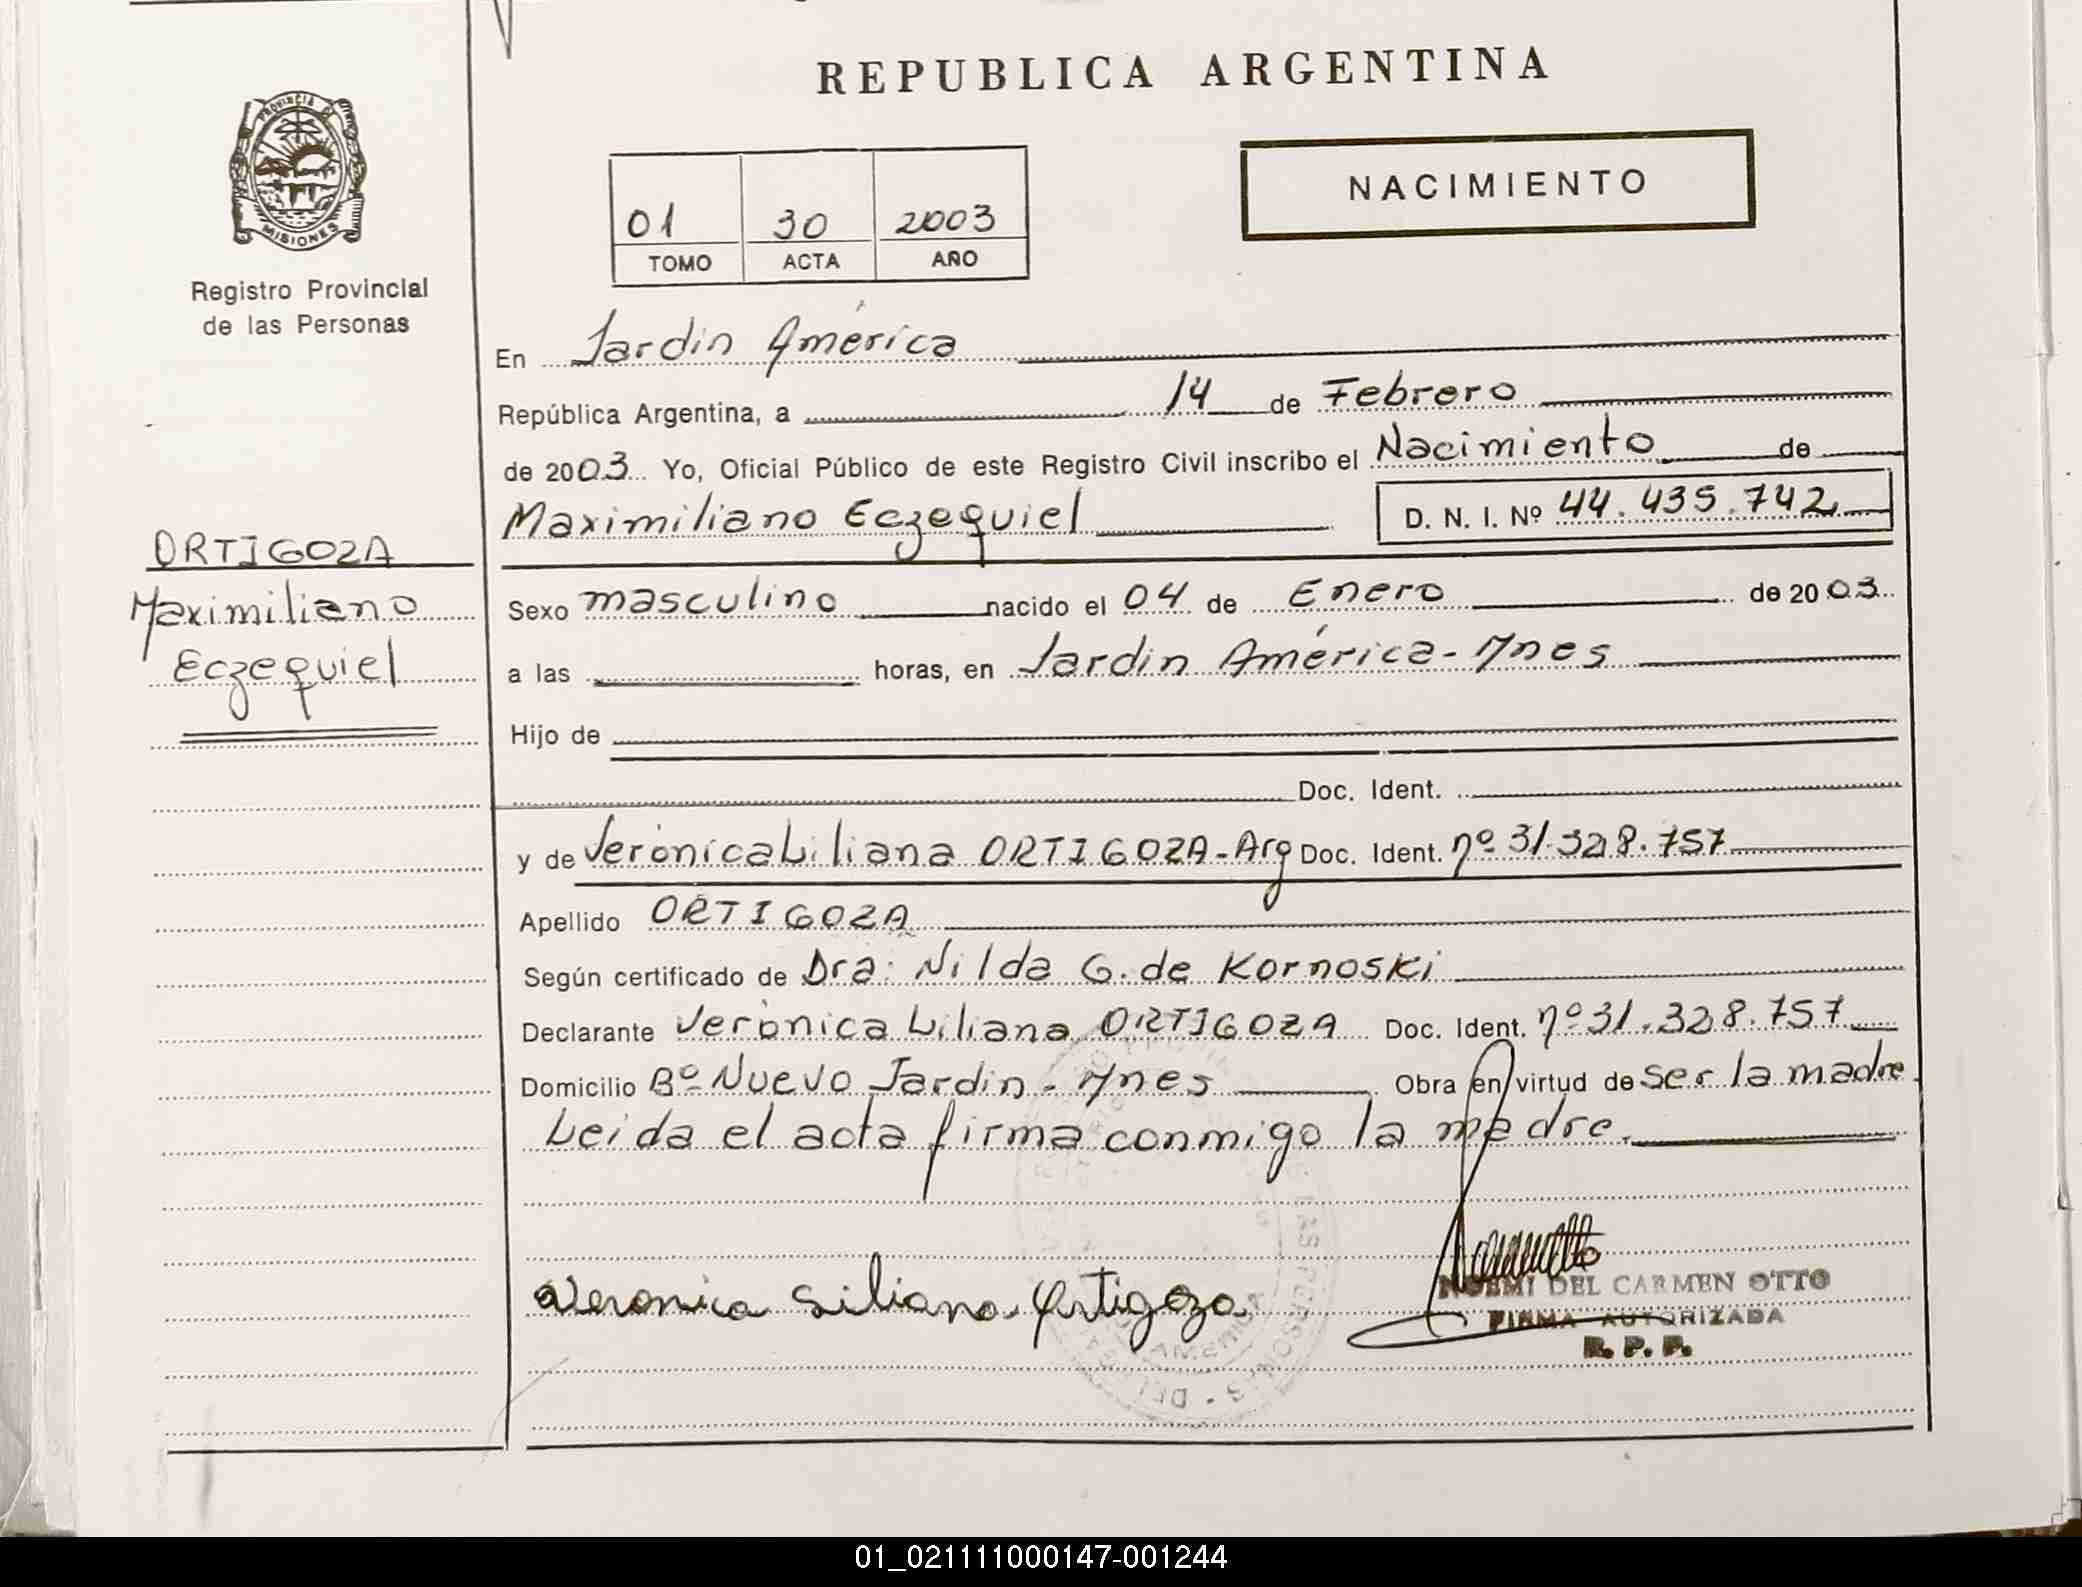 REPUBLICA ARGENTINA
PROVINCIA DE
MISIONES
Registro Provincial
de las Personas
01 30 2003
TOMO ACTA AÑO
NACIMIENTO
En Jardín América
República Argentina, a 14 de Febrero
de 2003 Yo, Oficial Público de este Registro Civil inscribo el Nacimiento de
Maximiliano Eczequiel D. N. I. Nº 44.435.742
ORTIGOZA
Maximiliano
Eczequiel
Sexo masculino nacido el 04 de Enero de 2003
a las horas, en Jardín América - Mnes
Hijo de
Doc. Ident.
y de Verónica Liliana ORTIGOZA - Arg Doc. Ident. nº 31.328.757
Apellido ORTIGOZA
Según certificado de Dra: Nilda G. de Kornoski
Declarante Verónica Liliana ORTIGOZA Doc. Ident. nº 31.328.757
Domicilio Bº Nuevo Jardín - Mnes Obra en virtud de ser la madre
Leida el acta firma conmigo la madre.
Veronica Liliana Ortigoza
NOEMI DEL CARMEN OTTO
FIRMA AUTORIZADA
R. P. P.
01_021111000147-001244